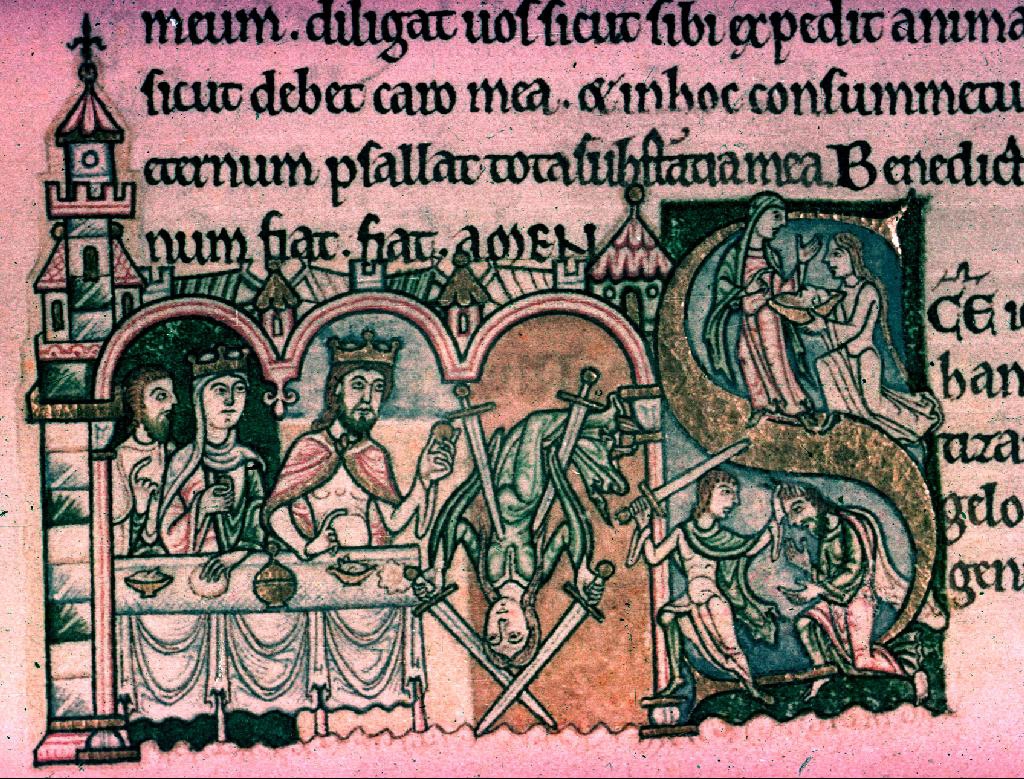 meum. diligat uos sicut sibi expedit anima
sicut debet caro mea. & in hoc consummetu
eternum psallat tota substātia mea Benedict
num fiat. fiat. AMEN
S
CE
ban
tiza
gelo
gen